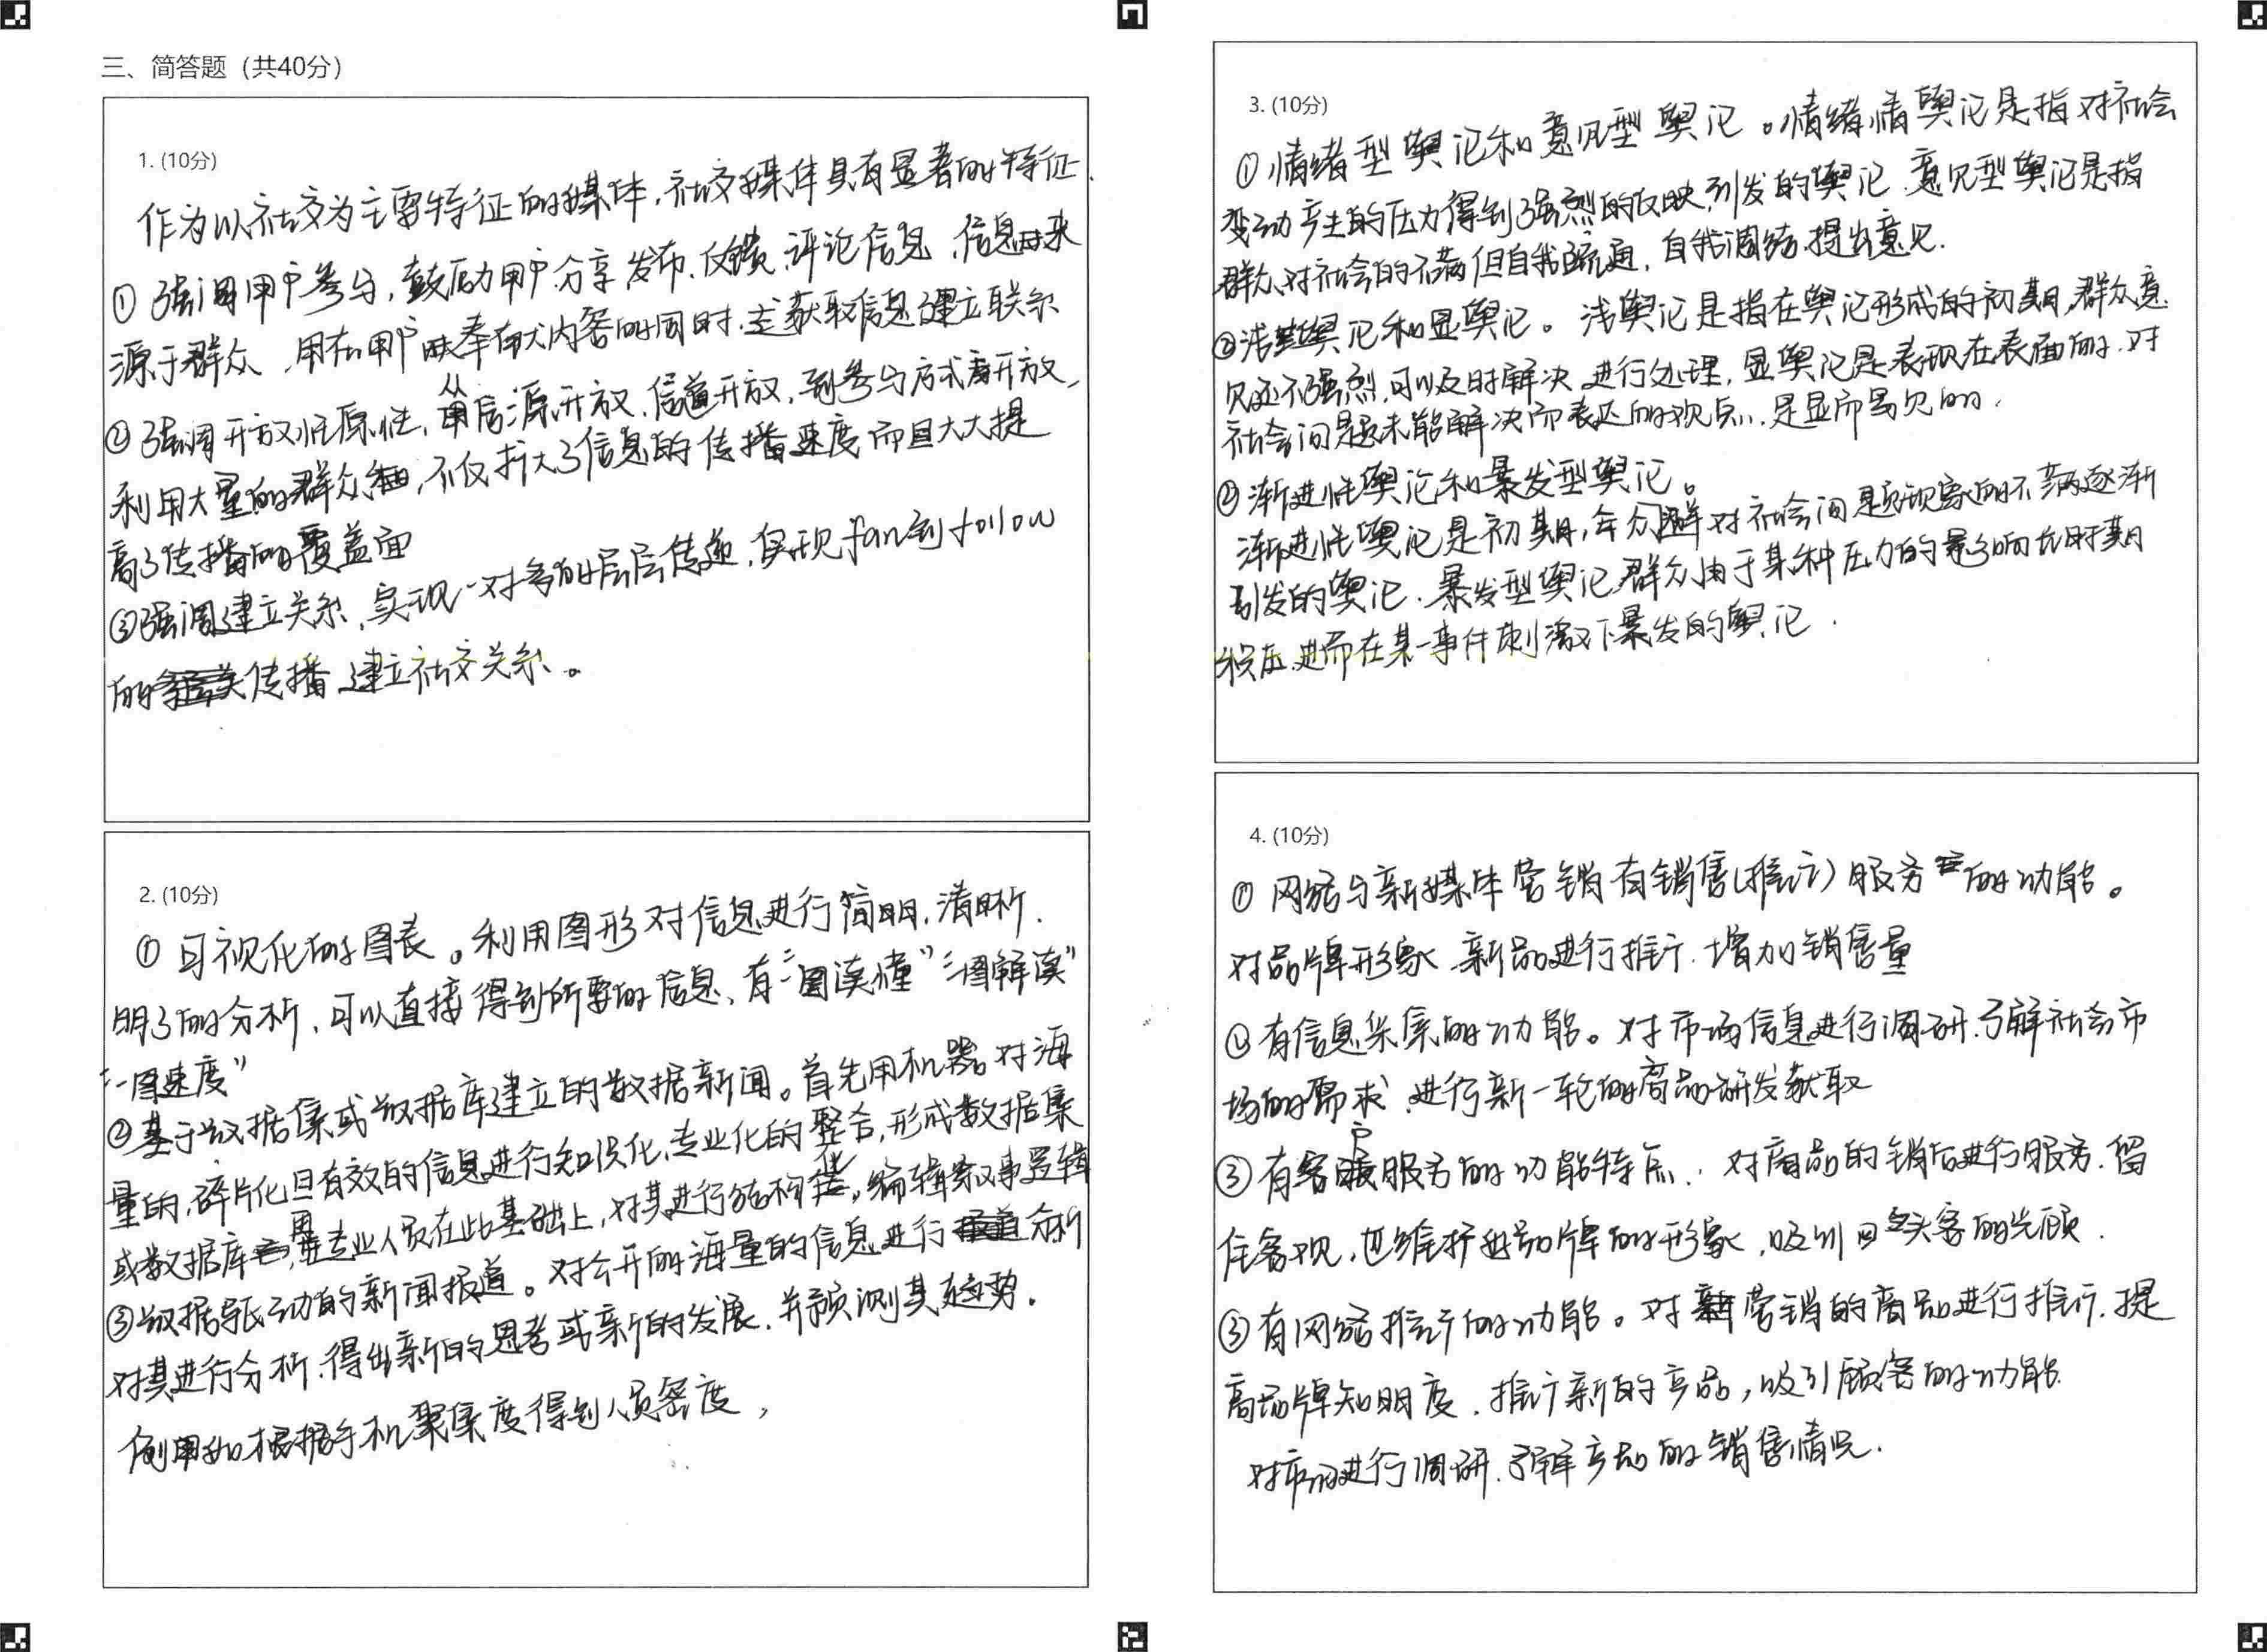 三、简答题（共40分）
1. (10分)
作为以社交为主要特征的媒体，社交媒体具有显著的特征.
①强调用户参与，鼓励用户分享发布、反馈、评论信息，信息来
源于群众，用在用户奉献内容的同时，获取信息建立联系
②强调开放性原性，从信源开放、信道开放，到参与方式开放，
利用大量的群众，不仅扩大了信息的传播速度而且大大提
高了传播的覆盖面
③强调建立关系，实现一对多的层层传递，实现fan到follow
的传播，建立社交关系。
2. (10分)
①可视化的图表。利用图形对信息进行简明，清晰.
明了的分析，可以直接得到所要的信息，有“一图读懂”“一图解读”
“一图速度”
②基于数据集或数据库建立的数据新闻。首先用机器对海
量的，碎片化且有效的信息进行知识化，专业化的整合，形成数据集
或数据库，再专业人员在此基础上，对其进行结构化，编辑叙事逻辑
③数据驱动的新闻报道。对公开的海量的信息进行分析
对其进行分析，得出新的思考或新的发展，并预测其趋势。
例如根据手机聚集度得到人员密度，
3. (10分)
①情绪型舆论和意见型舆论。情绪情舆论是指对社会
变动产生的压力得到强烈的反映，引发的舆论，意见型舆论是指
群众对社会的不满但自我疏通，自我调结，提出意见.
②浅舆论和显舆论。浅舆论是指在舆论形成的初期，群众意
见还不强烈，可以及时解决，进行处理，显舆论是表现在表面的，对
社会问题未能解决而表达的观点，是显而易见的.
②渐进性舆论和暴发型舆论。
渐进性舆论是初期，群对社会问题现象的不满逐渐
引发的舆论，暴发型舆论群众由于某种压力的影响长时期
积压，进而在某一事件刺激下暴发的舆论.
4. (10分)
①网络与新媒体营销有销售(推广)服务的功能。
对品牌形象，新品进行推广，增加销售量
②有信息采集的功能。对市场信息进行调研，了解社会市
场的需求，进行新一轮的商品研发获取
③有客户服务的功能特点，对商品的销后进行服务，留
住客观，也维护品牌的形象，吸引回头客的光顾.
③有网络推广的功能。对营销的商品进行推广，提
高品牌知明度，推广新的产品，吸引顾客的功能
对市场进行调研，了解产品的销售情况.